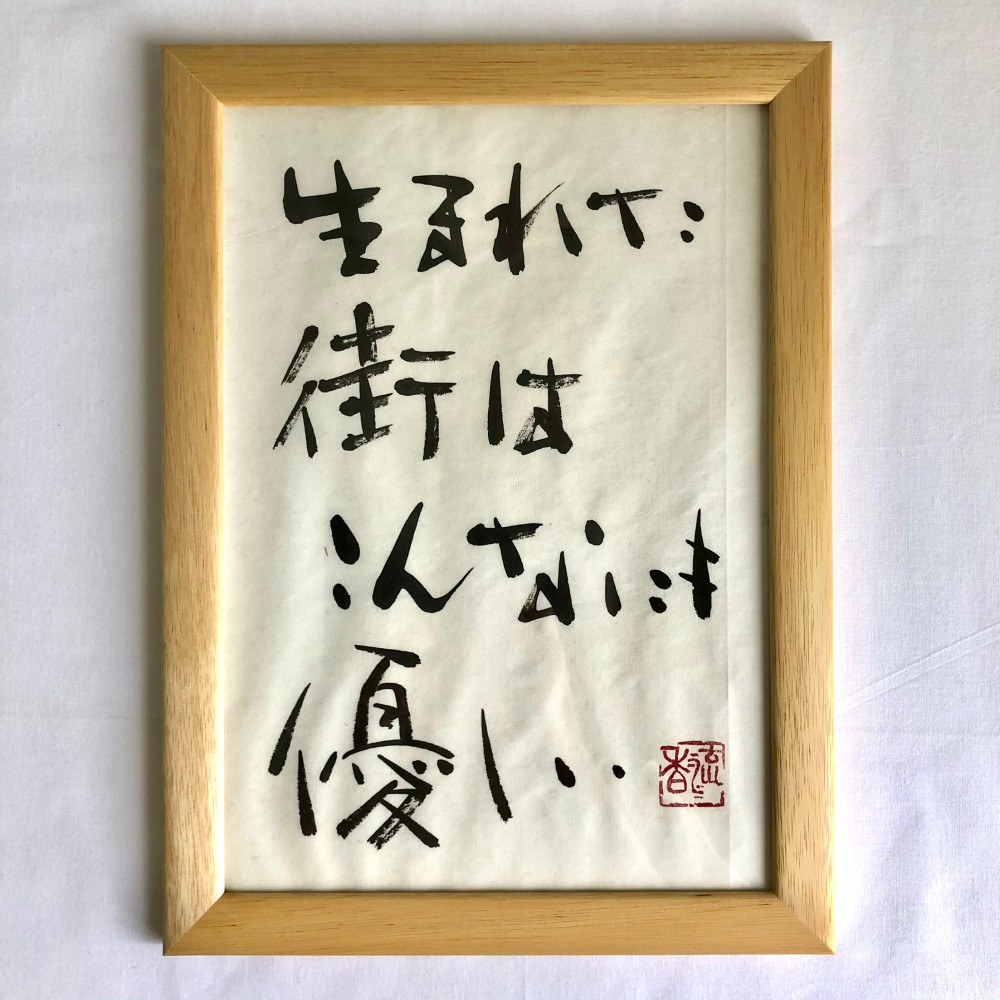 生まれた
街は
こんなにも
優しい